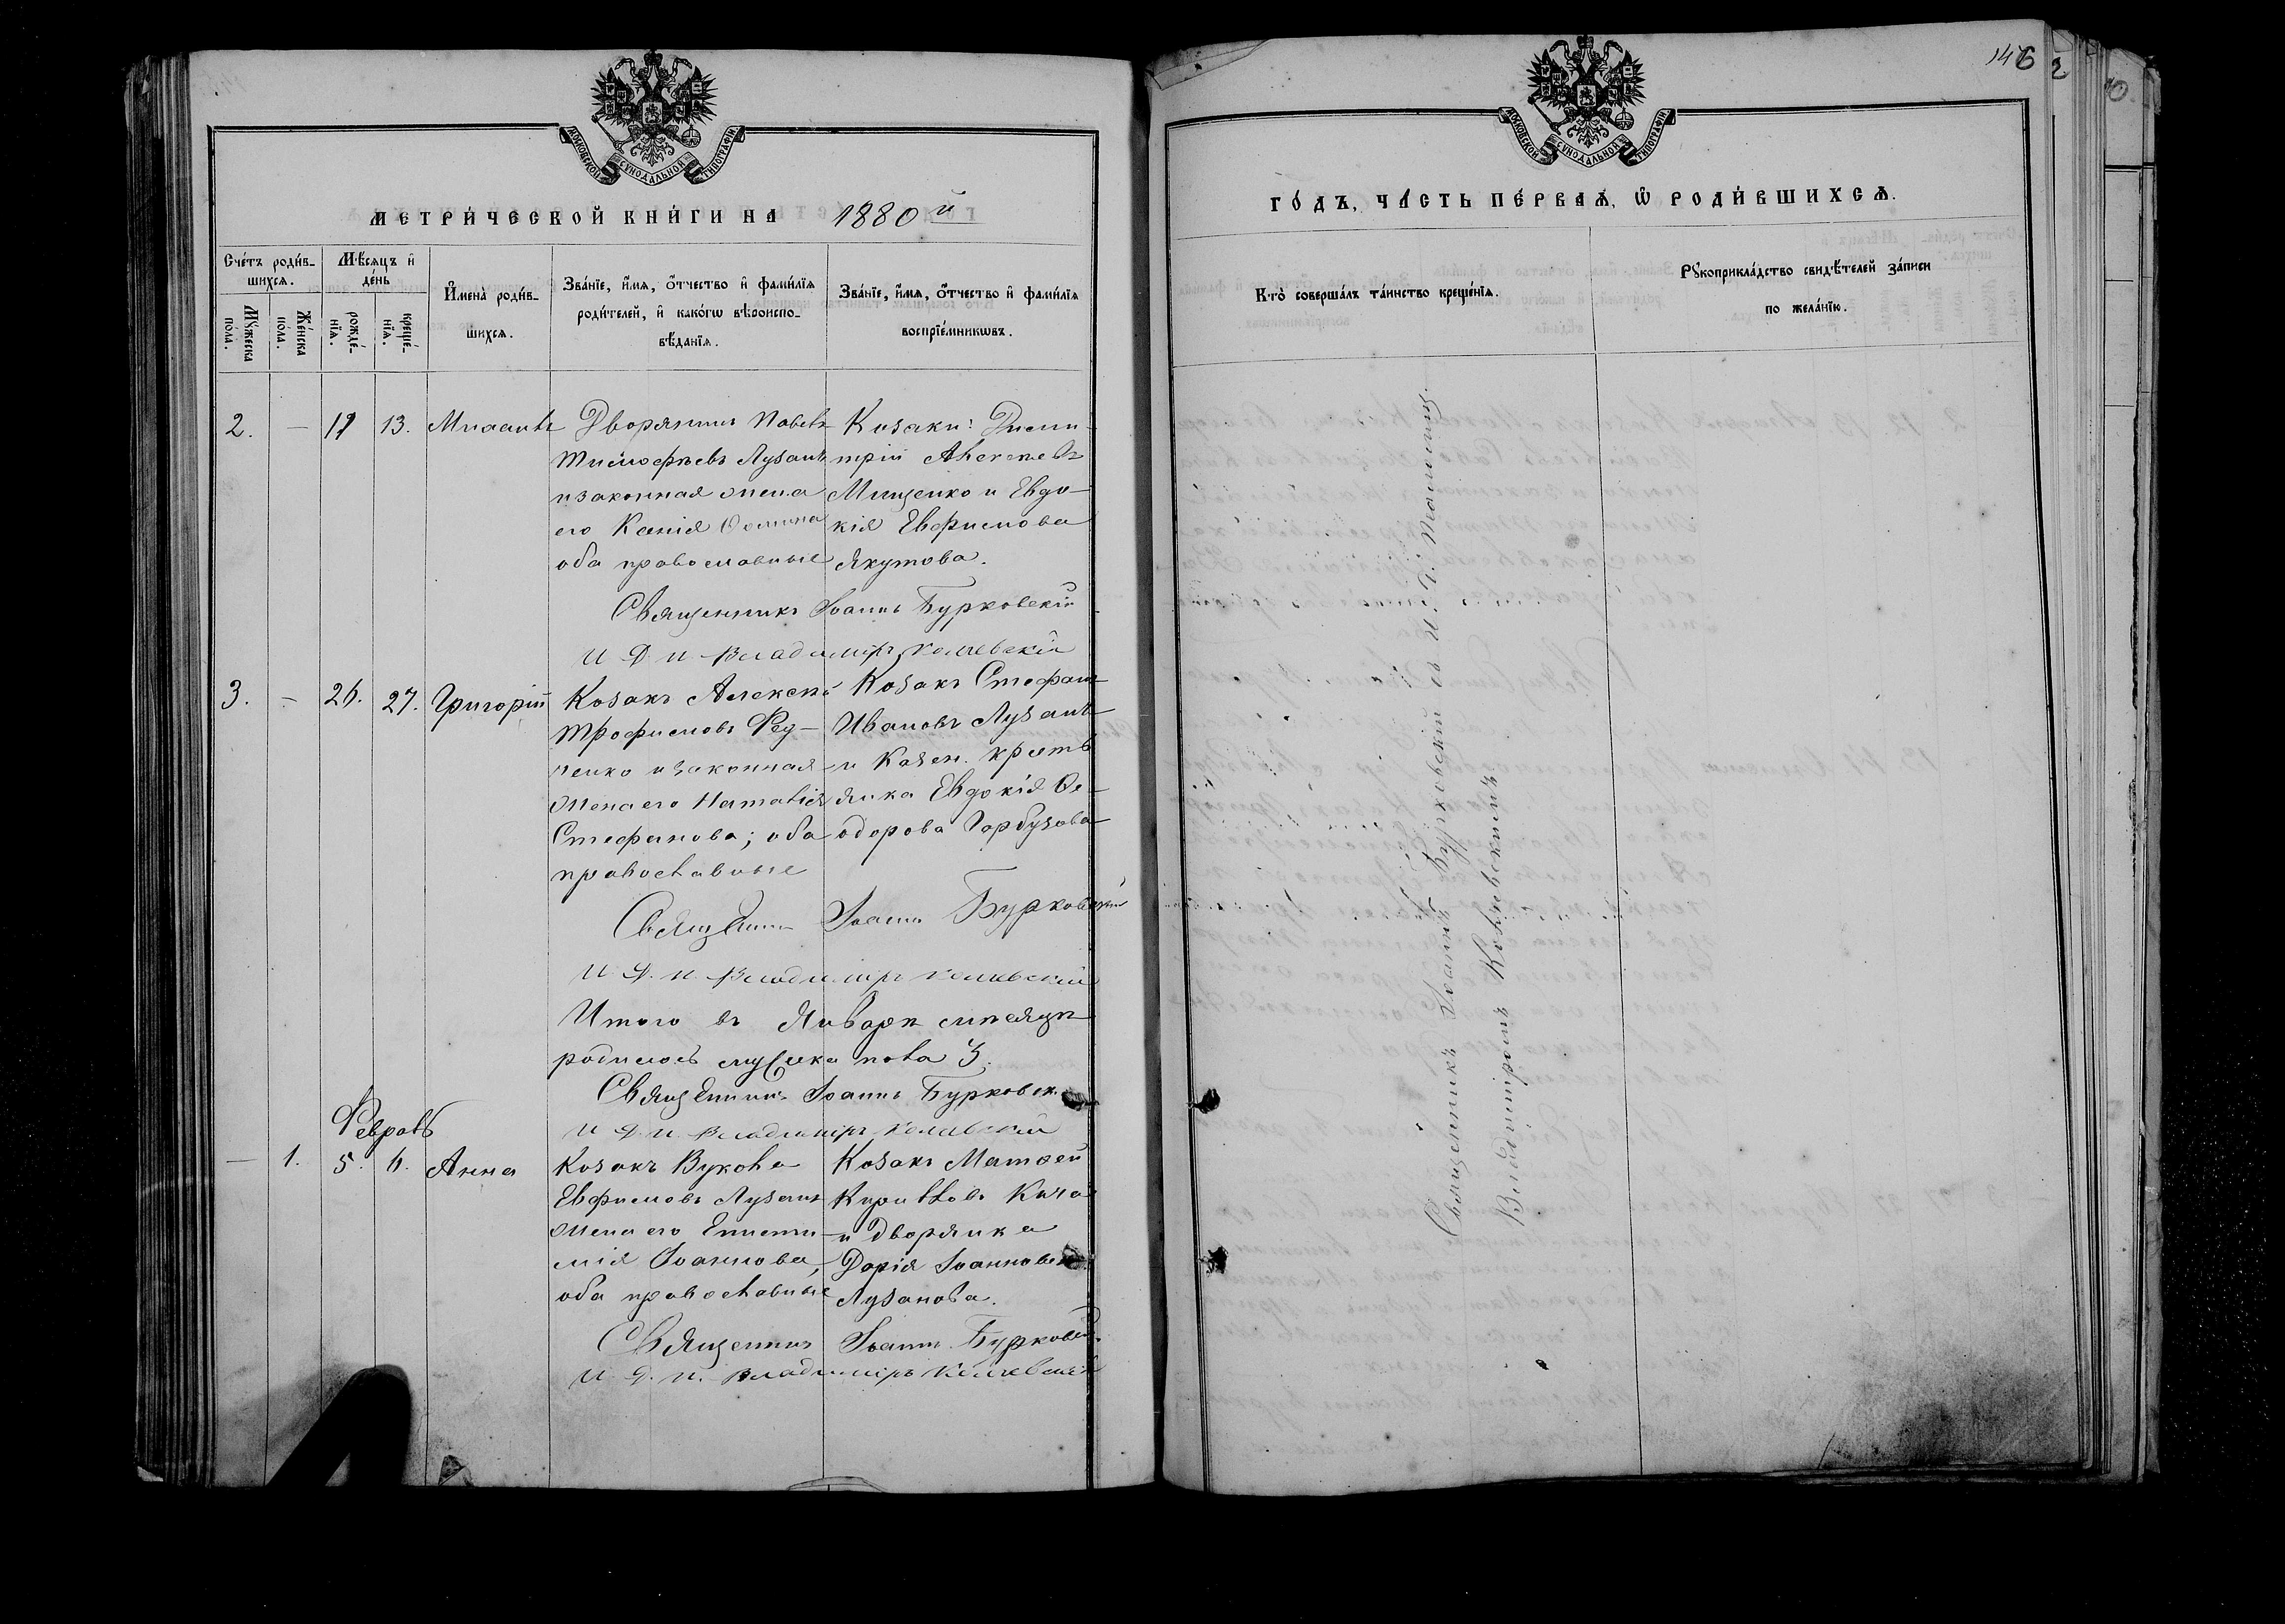 МОСКОВСКОЙ СѴНОДАЛЬНОЙ ТИПОГРАФІИ
МЕТРИ́ЧЕСКОЙ КНИ́ГИ НА 1880й
Сче́тъ роди́в-
шихся.
Мꙋжеска пола.
Же́нска по́ла.
Мѣ́сяцъ и де́нь
рожде́-
нїя.
креще́-
нїя.
Имена̀ роди́в-
шихся.
Зва́нїе, и́мя, о́тчество и фами́лїя
роди́телей, и како́гѡ вѣроиспо-
вѣ́данїя.
Зва́нїе, и́мя, о́тчество и фами́лїя
воспрїе́мникѡвъ.
2. — 13.
Дворянинъ Павелъ
Тимофѣевъ Лузанъ
и законная жена
его Ксенія Ѳомина
оба православные
Козаки: Дими-
трій Алексѣевъ
Мищенко и Евдо-
кія Евфимова
Якутова.
Священникъ Іоаннъ Бурковскій
И. Д. П. Владиміръ
3. — 26. 27. Григорій
Козакъ Алексѣй
Трофимовъ Ред-
ченко и законная
жена его Наталія
Стефанова; оба
православные
Козакъ Стефанъ
Ивановъ Лузанъ
и Казен. крестья-
янка Евдокія Ѳе-
одорова Горбузова
Священникъ Іоаннъ Бурковскій
И. Д. П. Владиміръ
Итого въ Январѣ мѣсяцѣ
родилось мужеска пола 3.
Священникъ Іоаннъ Бурковск.
И. Д. П. Владиміръ
Февраль
— 1. 5. 6. Анна
Козакъ Вукола
Евфимовъ Лузанъ
жена его Еписти-
мія Іоаннова,
оба православные
Козакъ Матѳей
Кирилловъ Кича
и дворянка
Дарія Іоаннова
Лузанова.
Священникъ Іоаннъ Бурковск.
И. Д. П. Владиміръ
146
МОСКОВСКОЙ СѴНОДАЛЬНОЙ ТИПОГРАФІИ
ГО́ДЪ, ЧА́СТЬ ПЕ́РВАЯ, Ѡ РОДИ́ВШИХСЯ.
Кто̀ соверша́лъ та́инство креще́нїя.
Рꙋкоприкла́дство свидѣ́телей за́писи
по жела́нїю.
Священникъ Іоаннъ Бурковскій съ И. Д. Псаломщ.
Владиміромъ